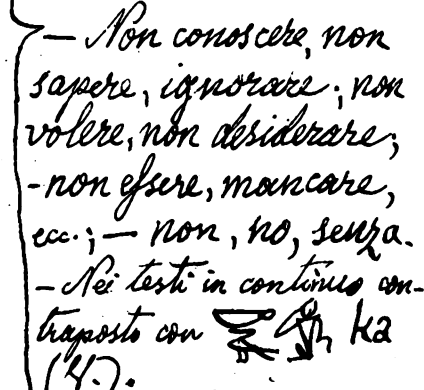 — Non conoscere, non
sapere, ignorare; non
volere, non desiderare;
- non essere, mancare,
ecc.; — non, no, senza.
— Nei testi in continuo con-
traposto con ka
(V.).